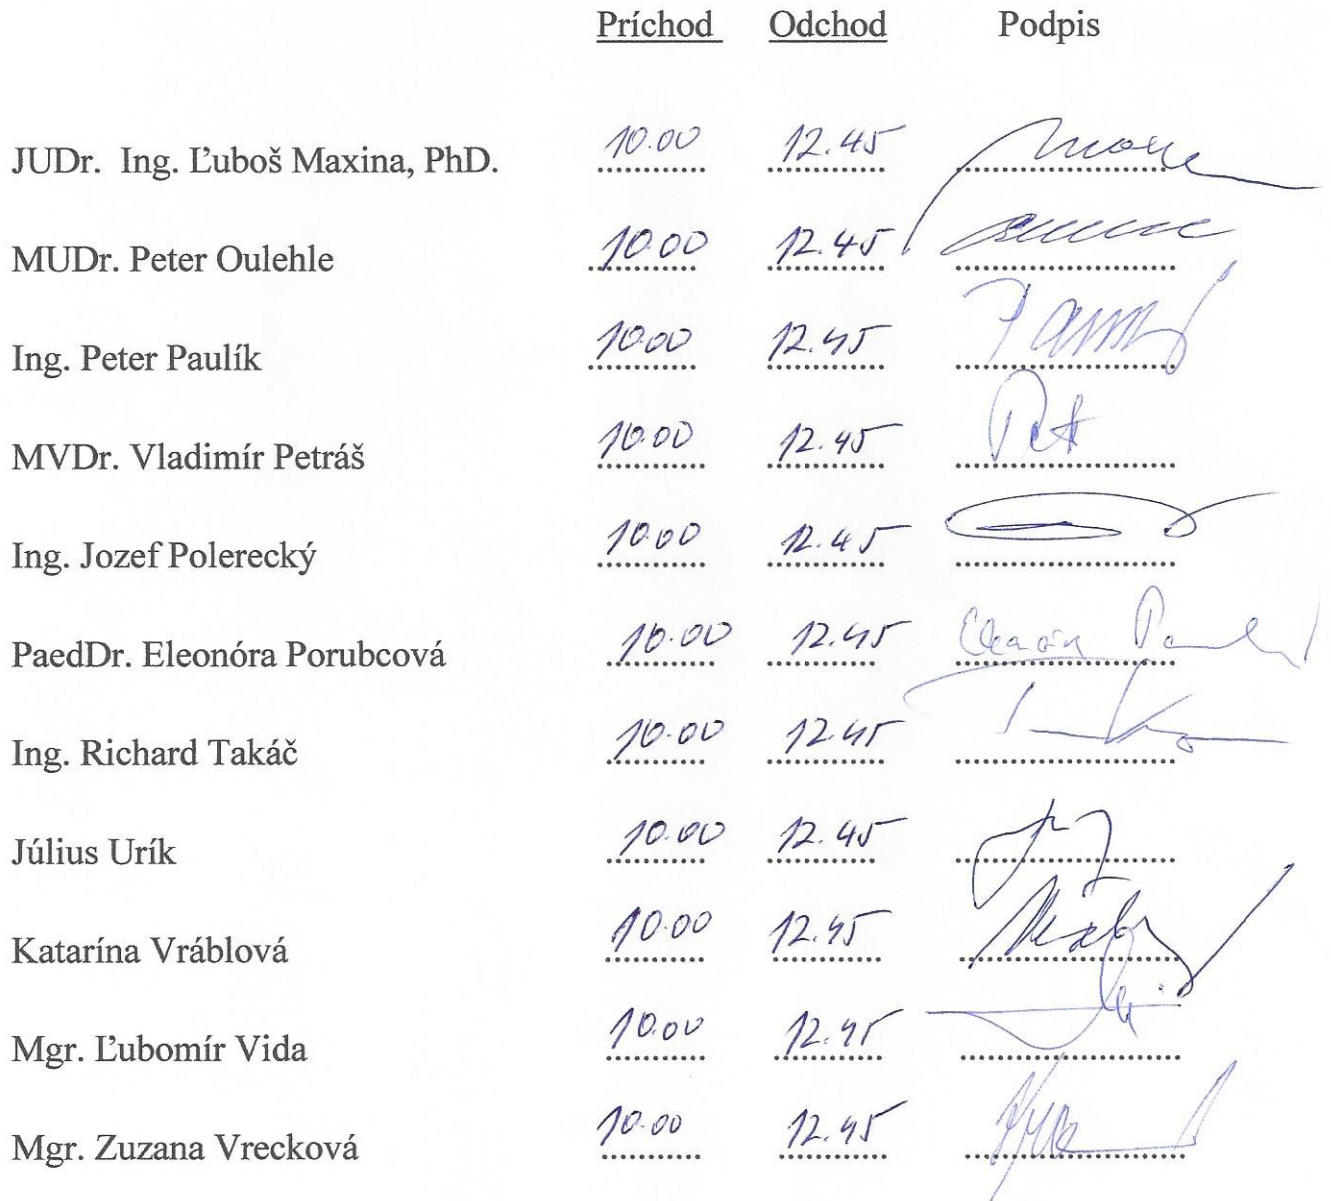 Príchod Odchod Podpis
JUDr. Ing. Ľuboš Maxina, PhD. 10.00 12.45
MUDr. Peter Oulehle 10.00 12.45
Ing. Peter Paulík 10.00 12.45
MVDr. Vladimír Petráš 10.00 12.45
Ing. Jozef Polerecký 10.00 12.45
PaedDr. Eleonóra Porubcová 10.00 12.45
Ing. Richard Takáč 10.00 12.45
Július Urík 10.00 12.45
Katarína Vráblová 10.00 12.45
Mgr. Ľubomír Vida 10.00 12.45
Mgr. Zuzana Vrecková 10.00 12.45